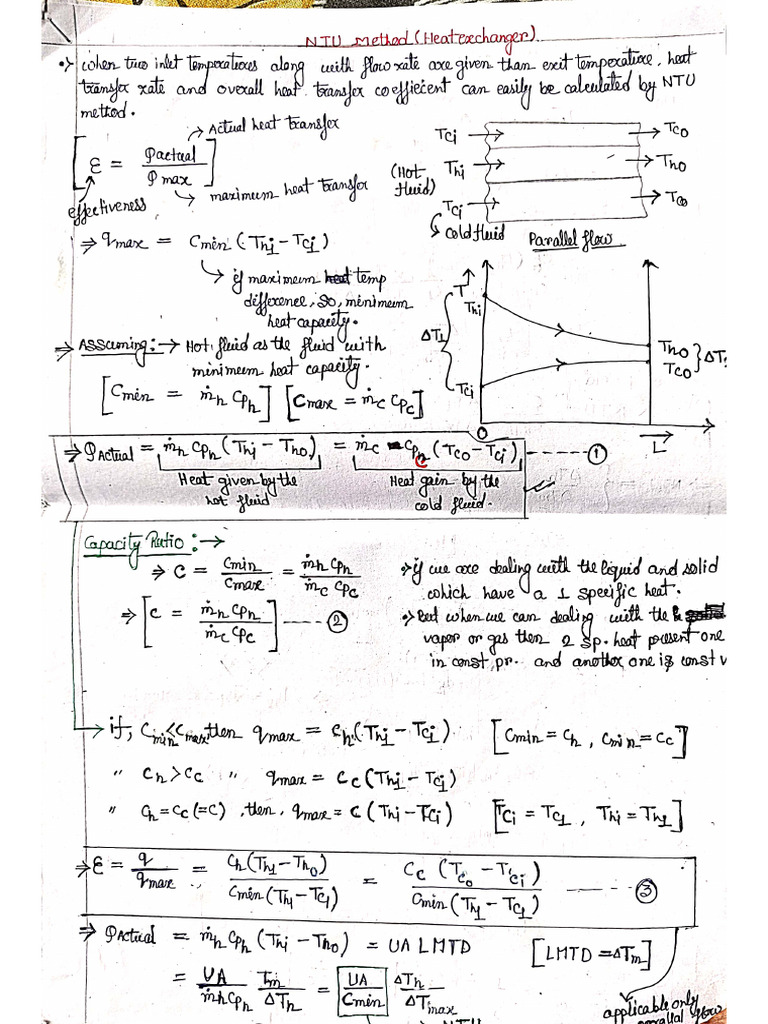 NTU Method (Heat exchanger).
•> When two inlet temperatures along with flow rate are given than exit temperature, heat
transfer rate and overall heat transfer coeffiecent can easily be calculated by NTU
method.
→ Actual heat transfer
[ε = qactual / qmax]
effectiveness
→ maximum heat transfer
TCi → → TCO
(Hot fluid) Thi → → Tho
TCi → → TCO
↳ cold fluid
Parallel flow
⇒ qmax = Cmin (Thi - TCi)
↳ if maximum temp
difference, so, minimum
heat capacity.
T↑
Thi
ΔT1
TCi
Tho
TCO
} ΔT
0
L
⇒ Assuming:→ Hot fluid as the fluid with
minimum heat capacity.
[Cmin = ṁh Cph] [Cmax = ṁc Cpc]
⇒ qActual = ṁh Cph (Thi - Tho) = ṁc Cpc (TCO - TCi) ------ ①
Heat given by the
hot fluid
Heat gain by the
cold fluid.
Capacity Ratio :→
⇒ C = Cmin / Cmax = ṁh Cph / ṁc Cpc
⇒ [C = ṁh Cph / ṁc Cpc] ----- ②
•> if we are dealing with the liquid and solid
which have a 1 specific heat.
•> But when we can dealing with the
vapor or gas then 2 sp. heat present one
in const, pr. and another one is const v
→ if, Cmin < Cmax then qmax = Ch (Thi - TCi) [Cmin = Ch, Cmin = CC]
" Ch > CC " qmax = CC (Thi - TC1)
" Ch = CC (=C), then, qmax = C (Thi - TCi) [TCi = TC1, Thi = Th1]
⇒ ε = q / qmax = Ch (Th1 - Tho) / Cmin (Th1 - TC1) = CC (TCo - TCi) / Cmin (Th1 - TC1) ------ ③
⇒ qActual = ṁh Cph (Thi - Tho) = UA LMTD [LMTD = ΔTm]
= UA / ṁh Cph Tm / ΔTh = UA / Cmin ΔTh / ΔTmax
applicable only
parallal flow
NTU